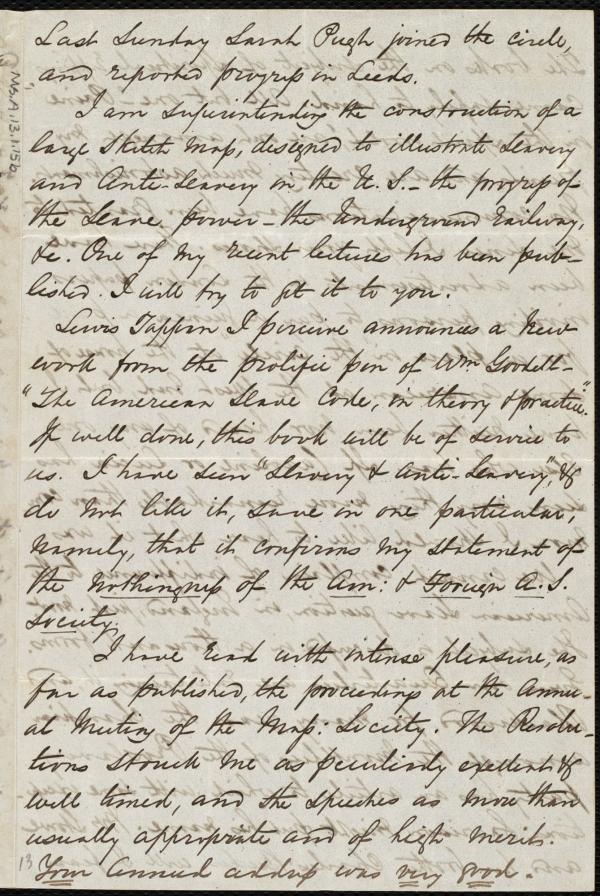 Last Sunday Sarah Pugh joined the circle,
and reported progress in Leeds.
I am superintending the construction of a
large Sketch Map, designed to illustrate Slavery
and Anti-Slavery in the U. S. - the progress of
the Slave power - the Underground Railway,
&c. One of my recent lectures has been pub-
lished. I will try to get it to you.
Lewis Tappan I perceive announces a New
work from the prolific pen of Wm Goodell -
"The American Slave Code, in theory & practice."
If well done, this book will be of service to
us. I have seen "Slavery & Anti-Slavery", &
do not like it, save in one particular,
namely, that it confirms my statement of
the nothingness of the Am: & Foreign A. S.
Society.
I have read with intense pleasure, as
far as published, the proceedings at the Annu-
al Meeting of the Mass: Society. The Resolu-
tions struck me as peculiarly excellent &
well timed, and the speeches as more than
usually appropriate and of high merit.
Your Annual address was very good.
Ms.A.1.3.115b
13